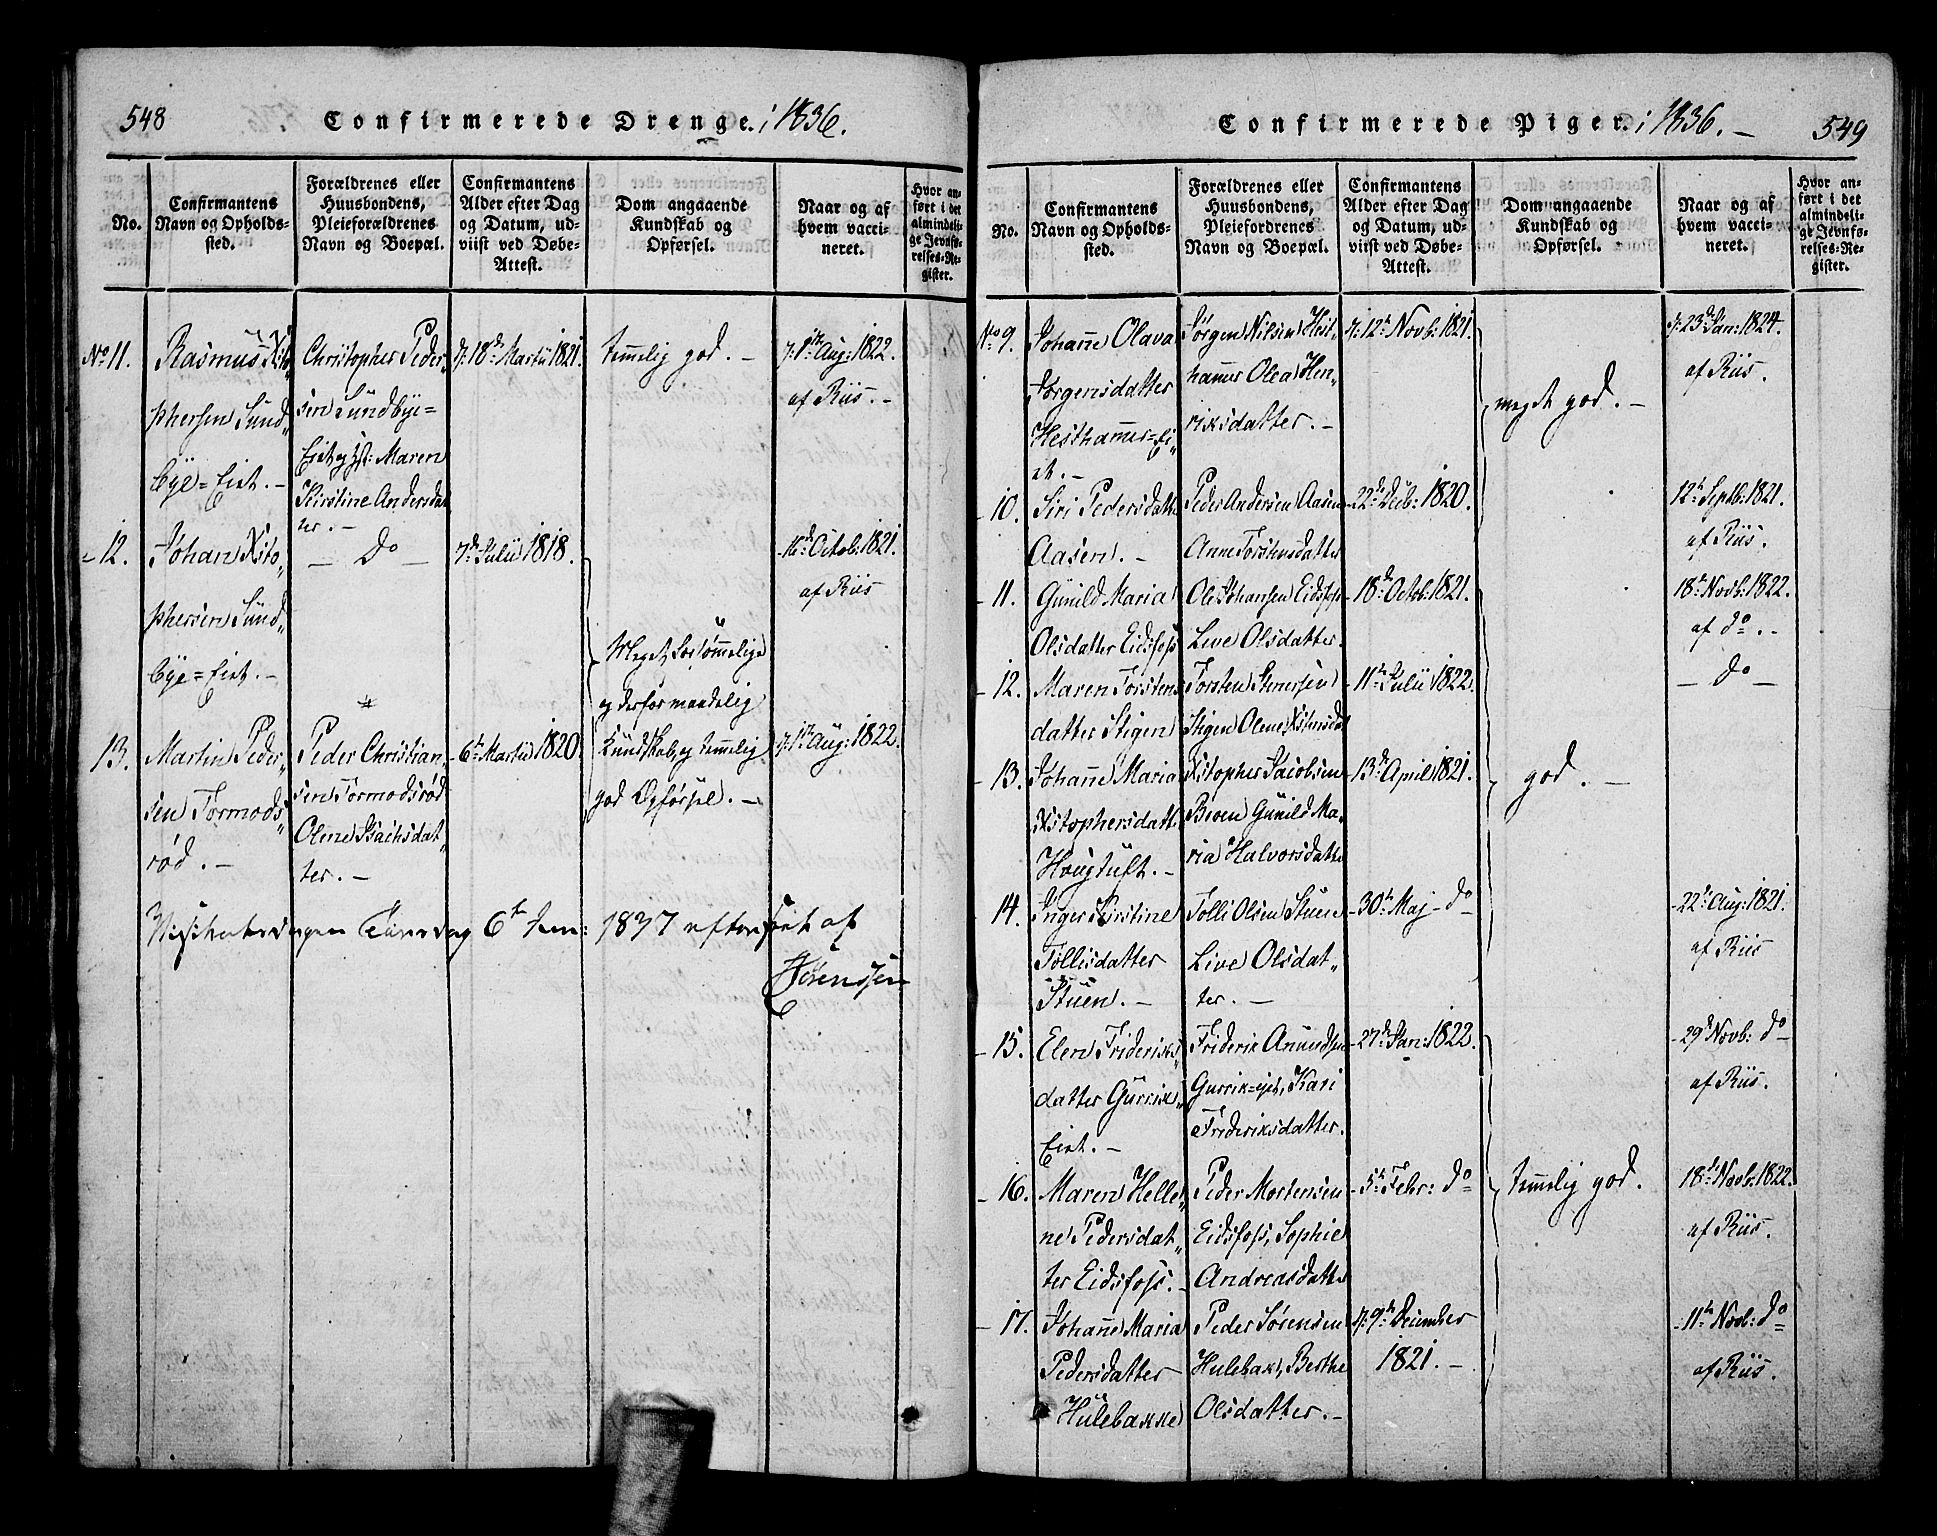 548
Confirmerede Drenge. i 1836.
No.
Confirmantens
Navn og Opholds-
sted.
Forældrenes eller
Huusbondens,
Pleieforældrenes
Navn og Boepæl.
Confirmantens
Alder efter Dag
og Datum, ud-
viist ved Døbe-
Attest.
Dom angaaende
Kundskab og
Opførsel.
Naar og af
hvem vacci-
neret.
Hvor an-
ført i det
almindeli-
ge Jevnfø-
relses-Re-
gister.
No 11.
Rasmus Xsto„
phersen Sund„
bye=Eiet. -
Christopher Peder„
sen Sundbye=
Maren
Kirstine Andersdat
ter. -
18de Martii 1821.
temmelig god. -
1ste Aug: 1822.
af Riis. -
- 12.
Johan Xsto„
phersen Sund„
bye=Eiet. -
- Do -
7de Julii 1818.
og
Kundskab, og temmelig
god Opførsel. -
- 16de Octob: 1821.
af Riis
13.
Martin Peder„
sen Tormods„
rød. -
Peder Christian„
sen Tormodsrød
Olene Isachsdat„
ter. -
- 6te Martii 1820.
1ste Aug: 1822.
6te Jan: 1837 efterseet af
Sørenssen
Confirmerede Piger. i 1836. -
549
No.
Confirmantens
Navn og Opholds-
sted.
Forældrenes eller
Huusbondens,
Pleiefordrenes
Navn og Boepæl.
Confirmantens
Alder efter Dag
og Datum, ud-
viist ved Døbe-
Attest.
Dom angaaende
Kundskab og
Opførsel.
Naar og af
hvem vacci-
neret.
Hvor an-
ført i det
almindeli-
ge Jevnfø-
relses-Re-
gister.
No 9.
Johanne Olava
Jørgensdatter
Hesthammer=Ei„
et. -
Jørgen Nilsen Hest„
hammer Olea Hen„
riksdatter. -
12te Novb: 1821.
meget god. -
23de Jan: 1824.
af Riis.
- 10.
Siri Pedersdatter
Aasen. -
Peder Andersen Aasen
Anne Torstensdatter
- 22de Decb: 1820.
12te Septb: 1821.
af Riis.
- 11.
Gunild Maria
Olsdatter Eidsfoss
Ole Johansen Eidsfoss
Live Olsdatter.
- 18de Octob: 1821.
18de Novb: 1822.
af do. -
- 12.
Maren Torstens
datter Stigen
Torsten Stenersen
Stigen Olene Xstensdat
- 11te Julii 1822.
- do -
- 13.
Johanne Maria
Xstophersdatter
Hougtuft. -
Xstopher Jacobsen
Gunild Ma„
ria Halvorsdatter
- 13de April 1821.
god. -
- 14.
Inger Kirstine
Tollisdatter
Stuen. -
Tolli Olsen Stuen
Live Olsdat„
ter. -
- 30te Maj - do
- 22de Aug: 1821.
af Riis
- 15.
Elen Frideriks„
datter Gurrik„
Eiet. -
Friderik Anundsen
Gurrik=eiet, Kari
Frideriksdatter.
- 27de Jan: 1822.
- 29de Novb: do
af Riis.
- 16.
Maren Helle„
ne Pedersdat„
ter Eidsfoss. -
Peder Mortensen
Eidsfoss, Sophie
Andreasdatter
- 5te Febr: do
temmelig god.
18de Novb: 1822.
af Riis.
- 17.
Johanne Maria
Pedersdatter
Hulebakke
Peder Sørensen
Hulebak, Berthe
Olsdatter. -
9de December
1821. -
- 11te Novb: do
af Riis.